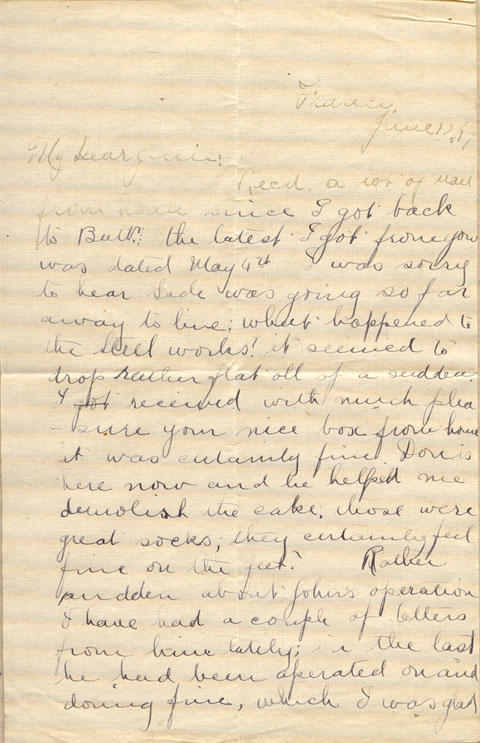 France,
June 17, 17
My Dear
Recd. a lot of mail
from home since I got back
to Batt.: the latest I got from you
was dated May 4th I was sorry
to hear Sade was going so far
away to live: what happened to
the steel works? it seemed to
drop rather flat all of a sudden.
I got received with much plea
- sure your nice box from home
it was certainly fine. Don is
here now and he helped me
demolish the cake, those were
great socks; they certainly feel
fine on the feet. Rather
sudden about John's operation
I have had a couple of letters
from him lately; in the last
he had been operated on and
doing fine, which I was glad